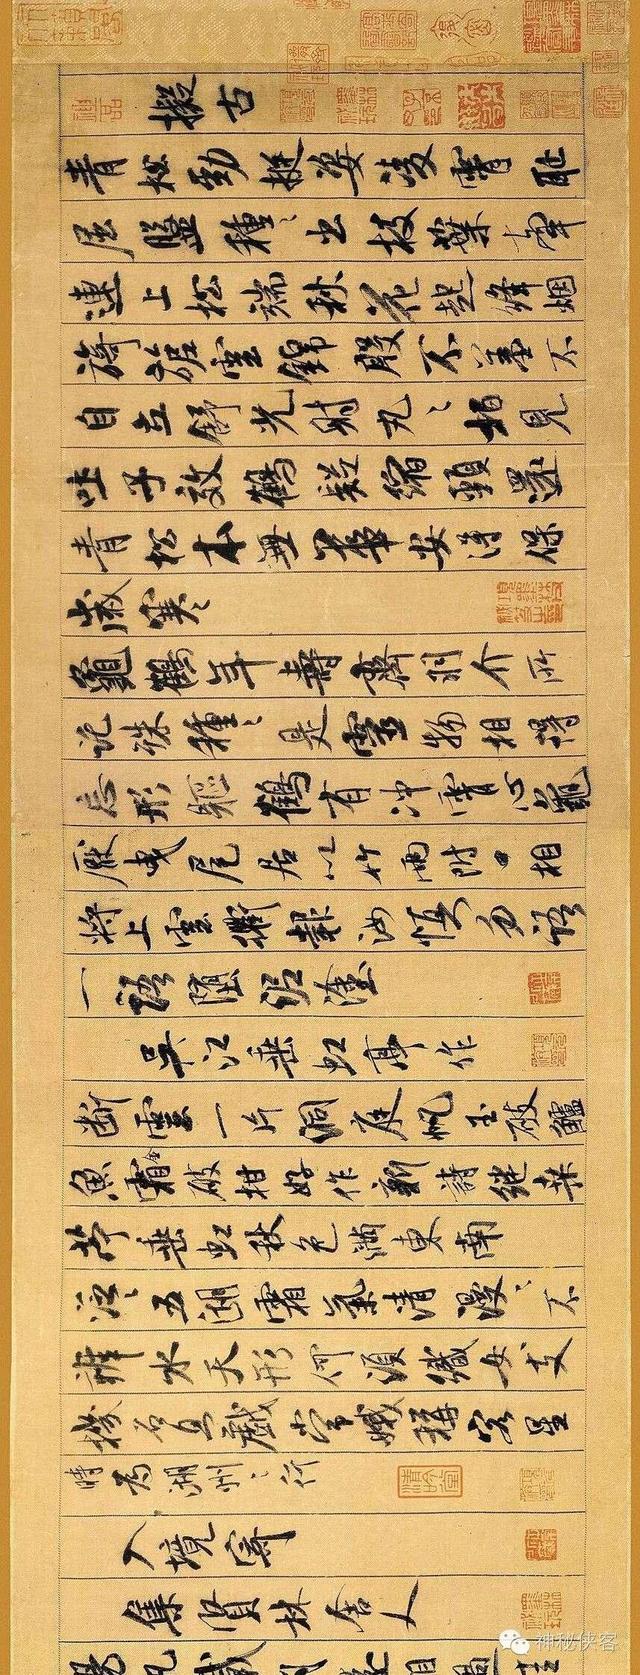 擬古
青松勁挺姿凌霄耻
屈盤種〻出枝葉牽
連上松端秋花起絳烟
旖旎雲錦殷不羞不
自立舒光射丸〻栢見
吐子效鶴疑縮頸還
青松本無華安得保
歲寒
龜鶴年壽齊羽介所
託殊種〻是靈物相得
忘形軀鶴有冲霄心龜
厭曳尾居以竹兩附口相
將上雲衢報汝慎勿語
一語墮泥塗
吳江垂虹亭作
斷雲一片洞庭帆玉破鱸
魚霜金破柑好作新詩繼桑
苧垂虹秋色滿東南
泛〻五湖霜氣清漫〻不
辨水天形何須織女支
機石且戲常娥稱客星
時為湖州之行
入境寄
集賢林舍人
神秘侠客